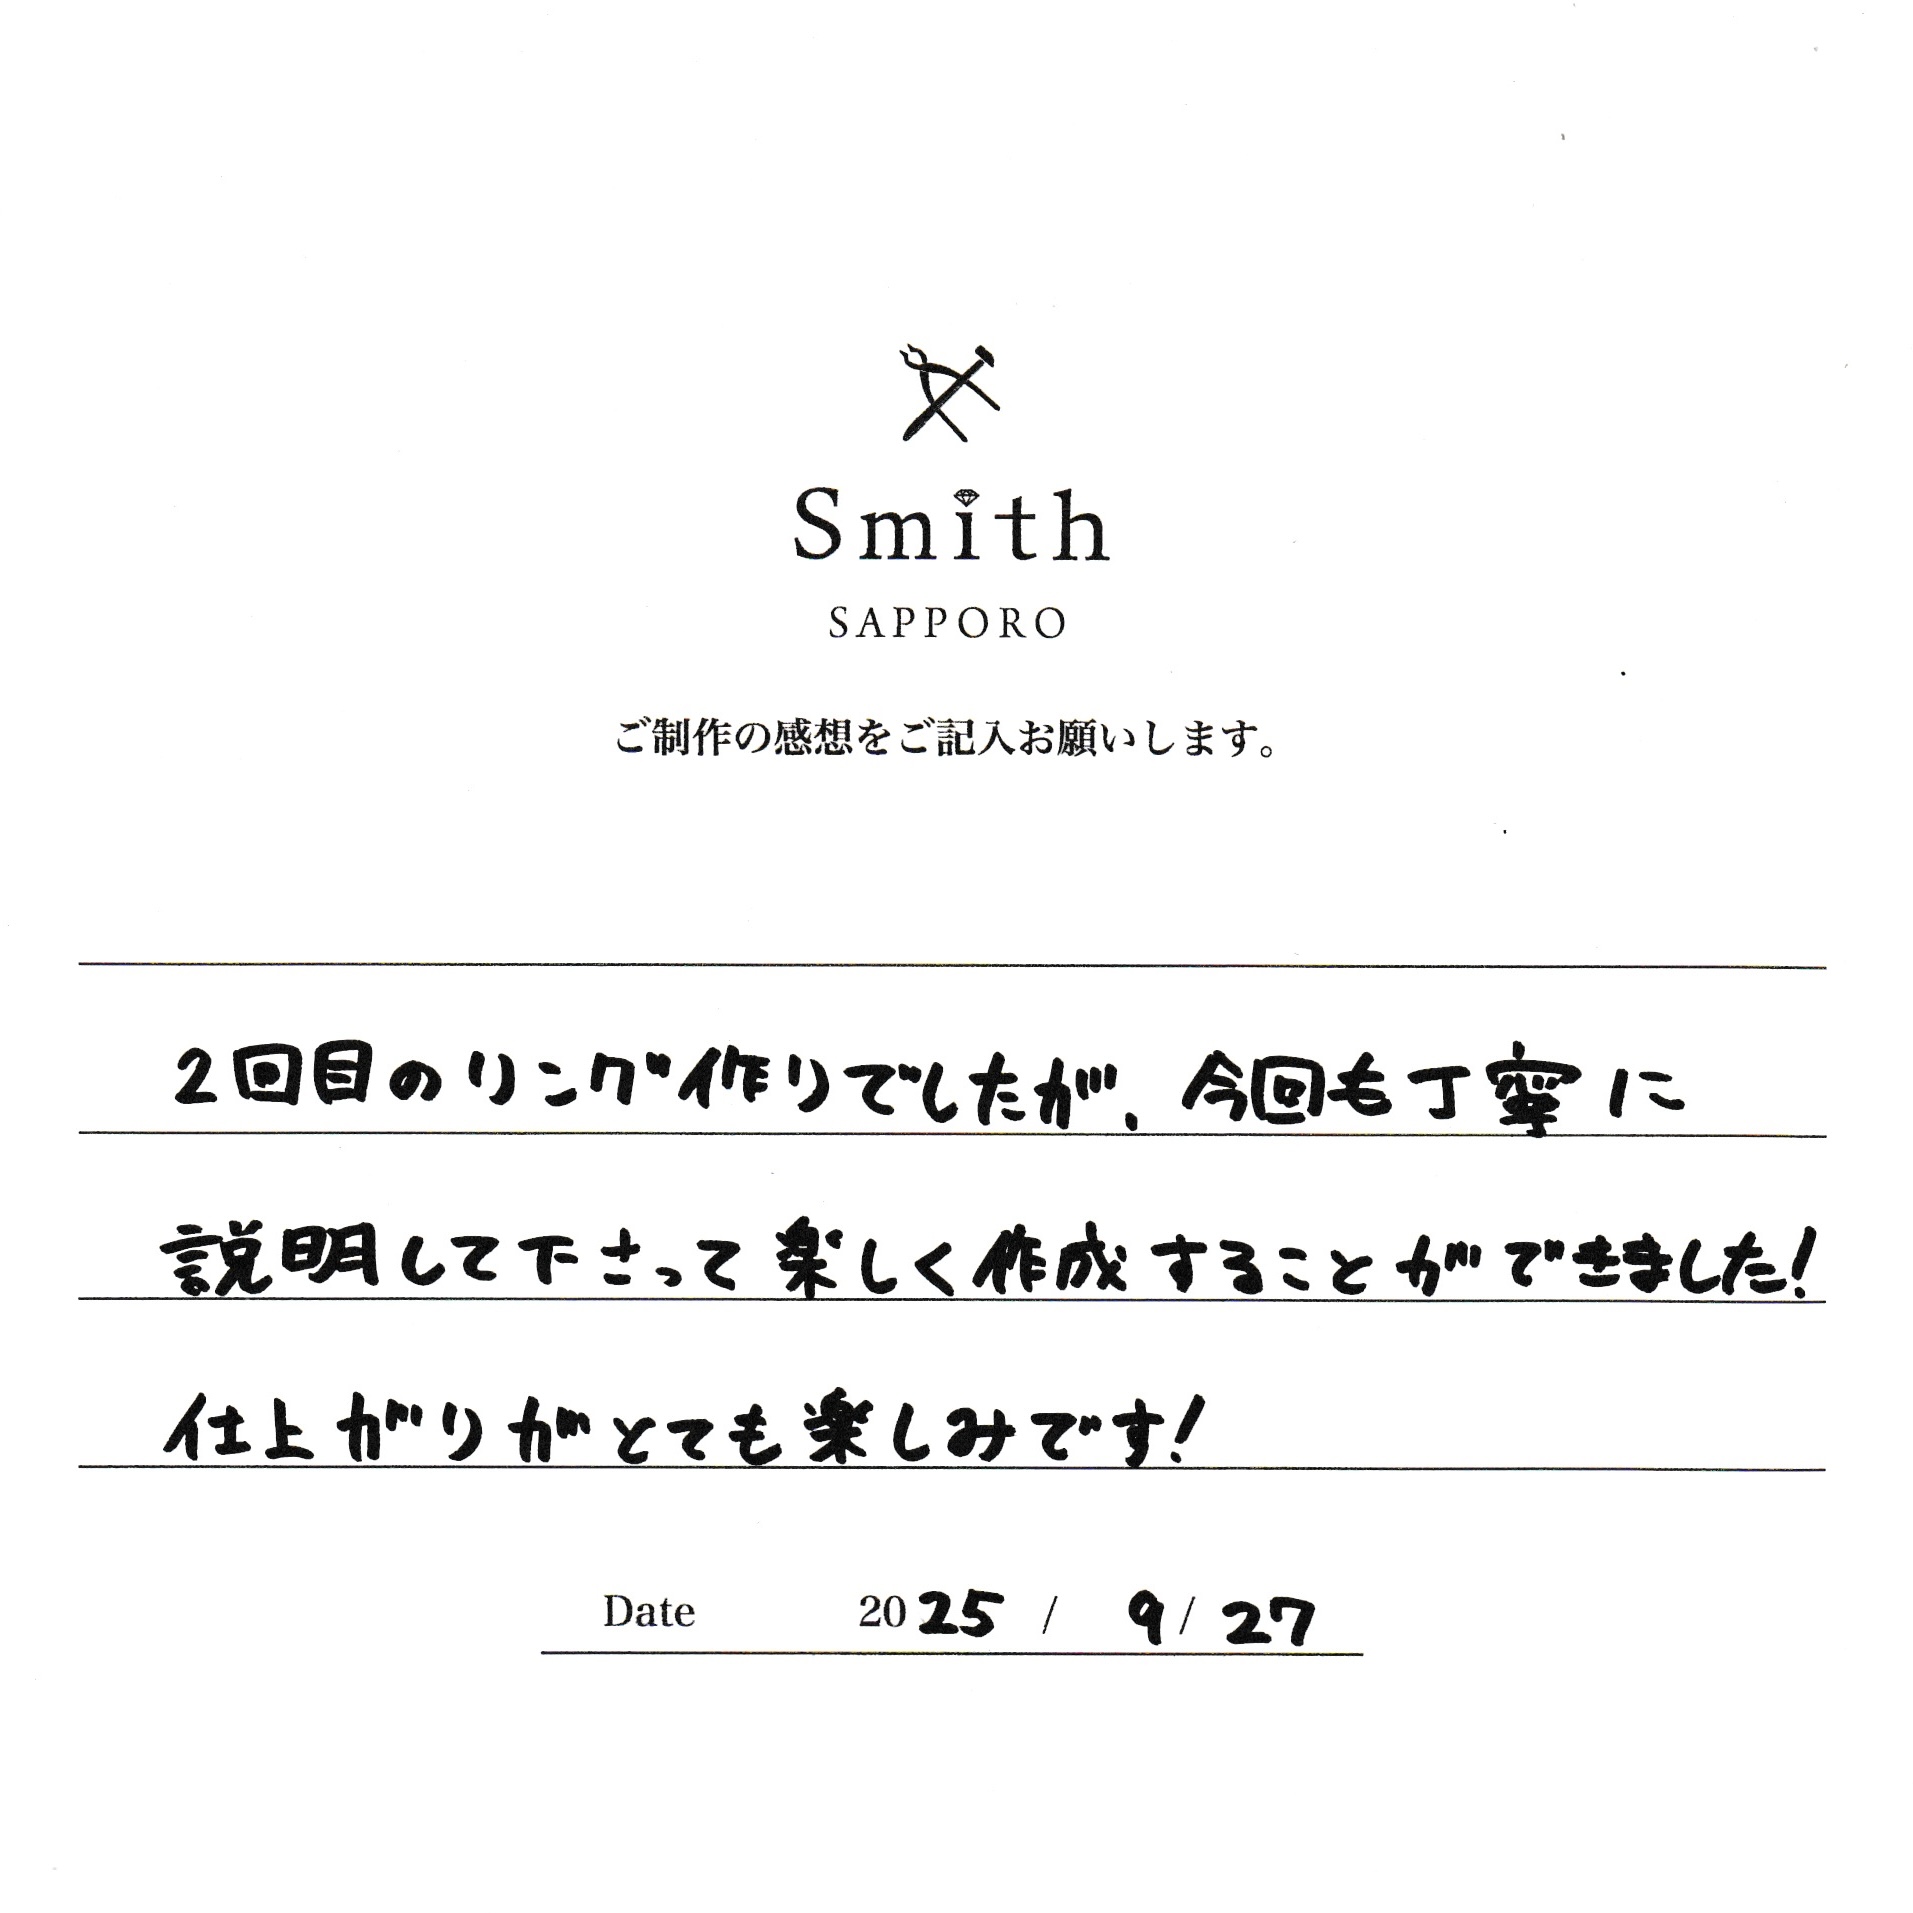 Smith
SAPPORO
ご制作の感想をご記入お願いします。
2回目のリング作りでしたが、今回も丁寧に
説明して下さって楽しく作成することができました!
仕上がりがとても楽しみです!
Date 2025 / 9 / 27